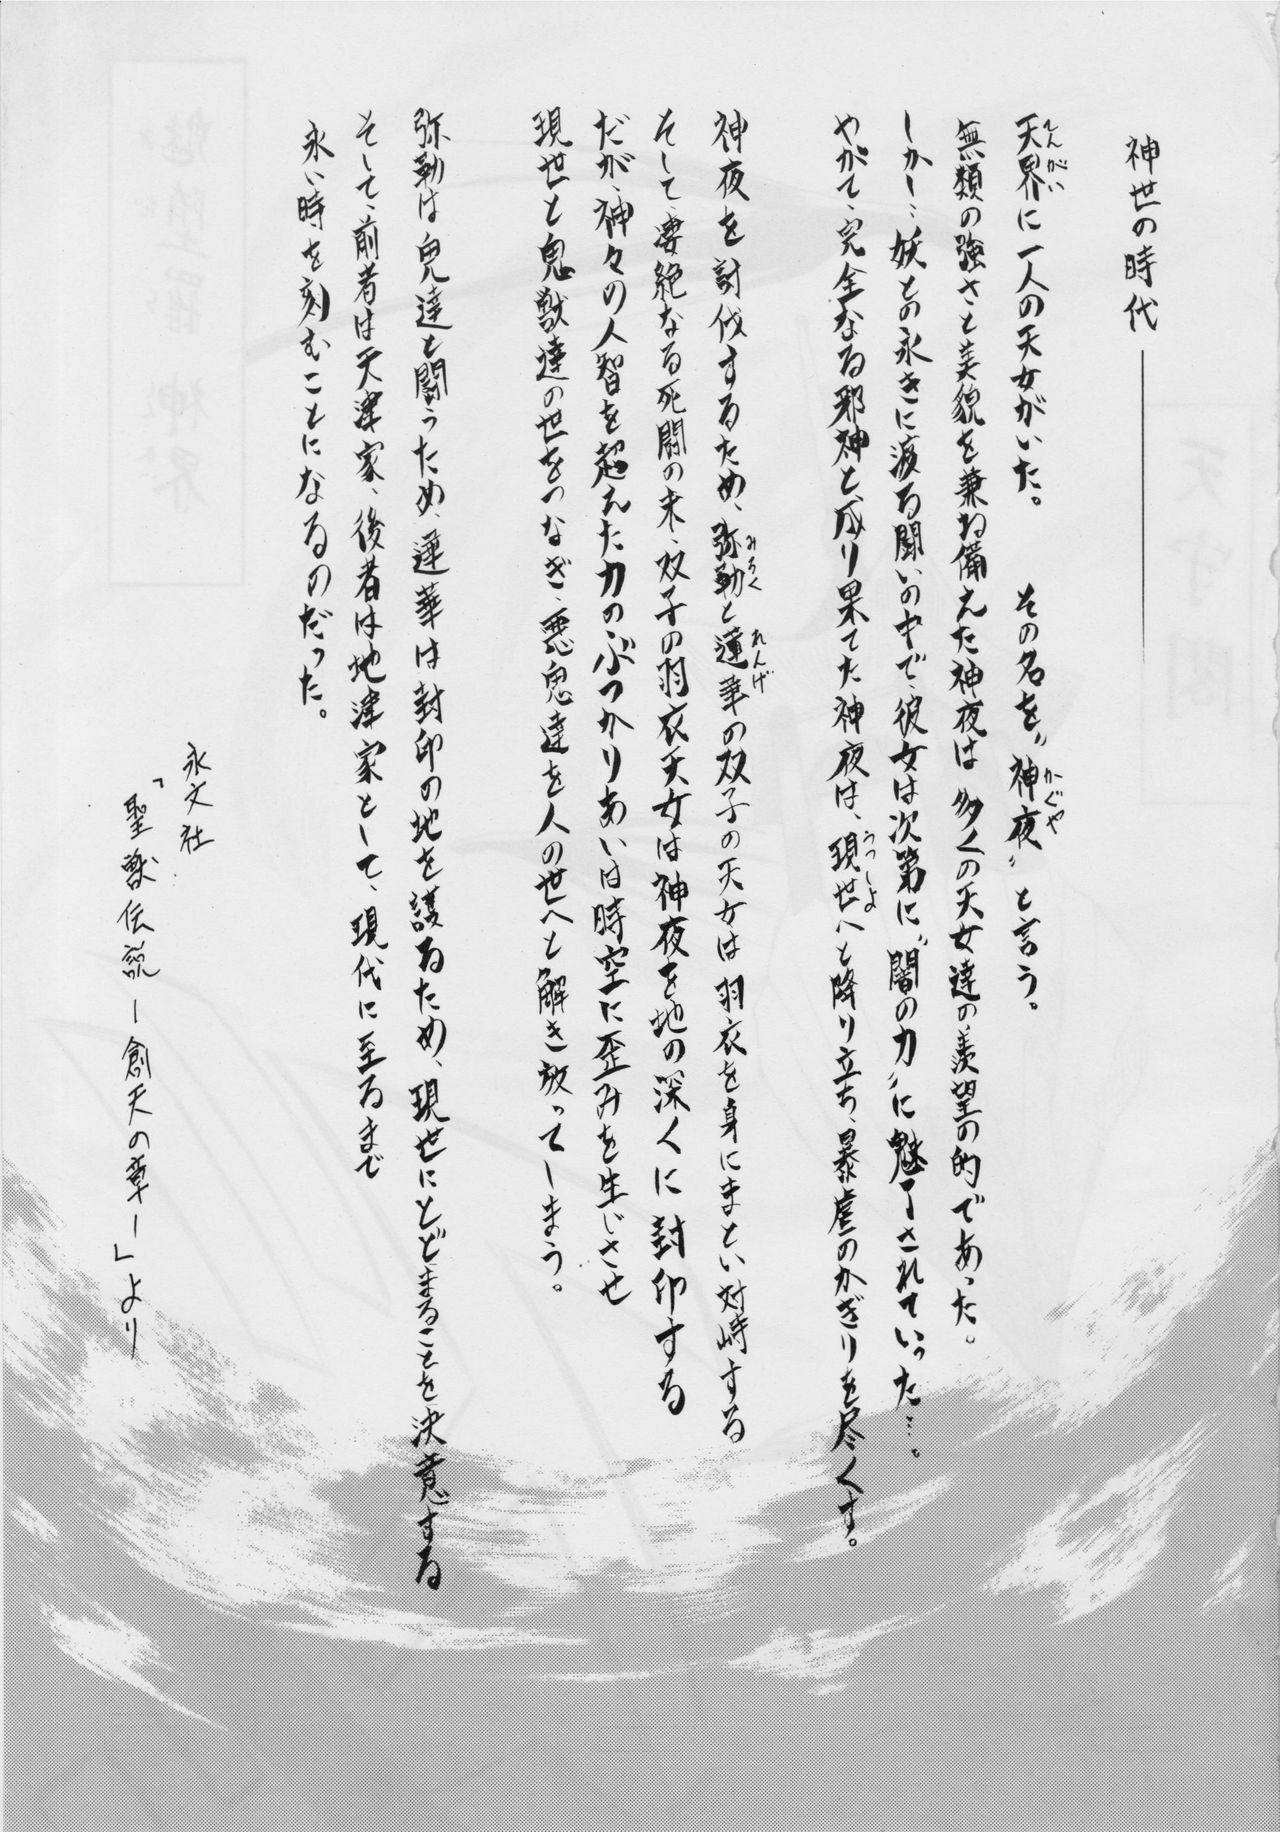 神世の時代――――――
天界に一人の天女がいた。　その名を〝神夜〟と言う。
てんがい
かぐや
無類の強さと美貌を兼ね備えた神夜は多くの天女達の羨望の的であった。
しかし…妖との永きに渡る闘いの中で、彼女は次第に〝闇の力〟に魅了されていった…。
やがて、完全なる邪神と成り果てた神夜は、現世へと降り立ち、暴虐のかぎりを尽くす。
うつしよ
神夜を討伐するため、弥勒と蓮華の双子の天女は羽衣を身にまとい対峙する
みろく
れんげ
そして、凄絶なる死闘の末、双子の羽衣天女は神夜を地の深くに封印する
だが、神々の人智を超えた力のぶつかりあいは時空に歪みを生じさせ
現世と鬼獣達の世をつなぎ、悪鬼達を人の世へと解き放ってしまう。
弥勒は鬼達と闘うため、蓮華は封印の地を護るため、現世にとどまることを決意する
そして、前者は天津家、後者は地津家として、現代に至るまで
永い時を刻むことになるのだった。
永文社
「聖獣伝説－創天の章－」より